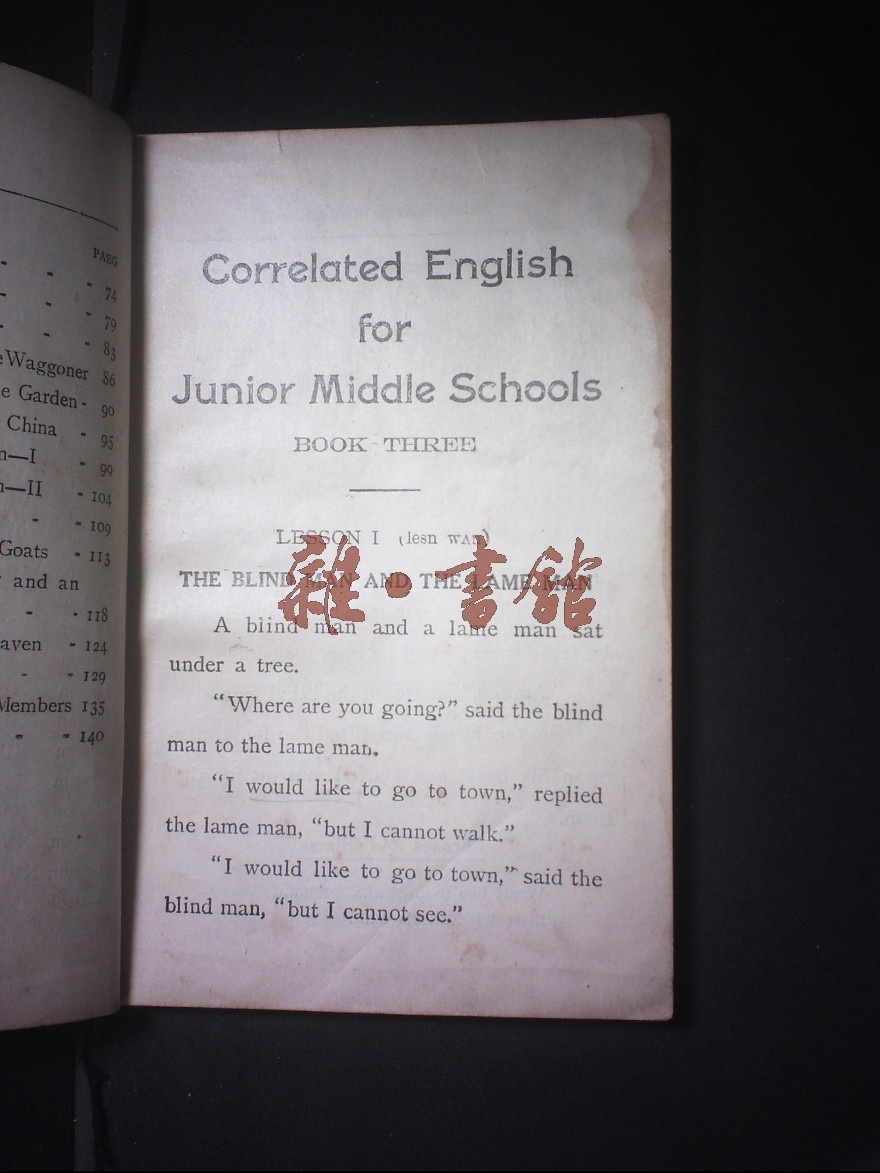 PAEG
- - - 74
- - - 79
- - - 83
Waggoner 86
e Garden - 90
China - 95
n—I - 99
n—II - 104
- - 109
Goats - 113
and an
- - 118
aven - 124
- - 129
Members 135
- - 140
Correlated English
for
Junior Middle Schools
BOOK THREE
LESSON I (lesn wʌn)
THE BLIND MAN AND THE LAME MAN
雜·書館
A blind man and a lame man sat
under a tree.
“Where are you going?” said the blind
man to the lame man.
“I would like to go to town,” replied
the lame man, “but I cannot walk.”
“I would like to go to town,” said the
blind man, “but I cannot see.”